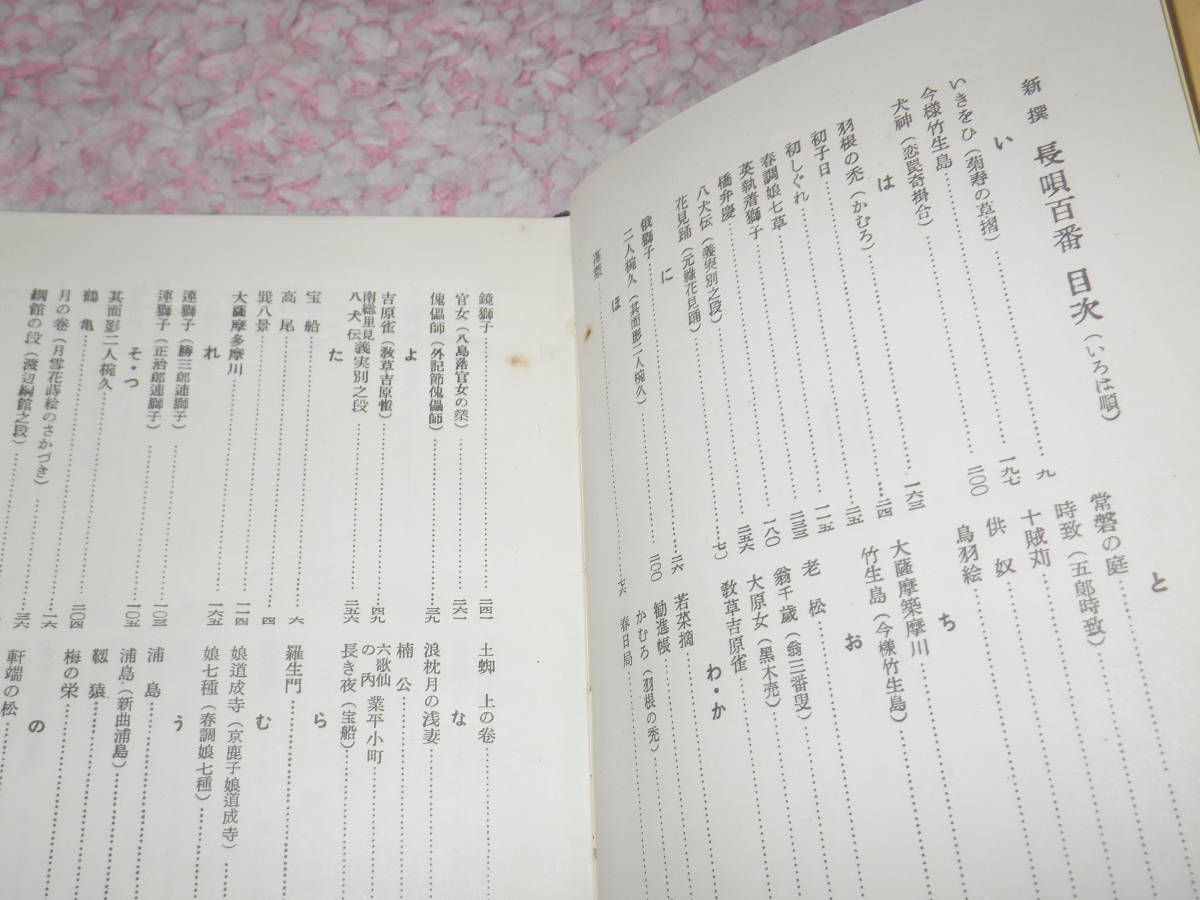 新撰 長唄百番 目次（いろは順）
い
いきをひ（菊寿の草摺）…九
今様竹生島…一九七
犬神（恋罠奇掛合）…二〇〇
は
羽根の禿（かむろ）…一六三
初子日…二四
初しぐれ…二五
春調娘七草…一一五
英執着獅子…二三三
橋弁慶…一八〇
八犬伝（義実別之段）…二五六
花見踊（元禄花見踊）…七〇
に
俄獅子…二六
二人椀久（其面影二人椀久）…二〇〇
ほ
蓬萊…七六
と
常磐の庭
時致（五郎時致）
十賊刈
供奴
鳥羽絵
ち
大薩摩築摩川
竹生島（今様竹生島）
お
老松
翁千歳（翁三番叟）
大原女（黒木売）
教草吉原雀
わ・か
若菜摘
勧進帳
かむろ（羽根の禿）
春日局
鏡獅子…二四一
官女（八島落官女の業）…二六一
傀儡師（外記節傀儡師）…三九
よ
吉原雀（教草吉原雀）…四九
南総里見八犬伝 義実別之段…二五六
た
宝船…六
高尾…四
巽八景…一一四
大薩摩多摩川…一六五
れ
連獅子（勝三郎連獅子）…一〇三
連獅子（正治郎連獅子）…一〇五
そ・つ
其面影二人椀久…二〇〇
鶴亀…二〇四
月の巻（月雪花蒔絵のさかづき）…一六
綱館の段（渡辺綱館之段）…三六
土蜘 上の巻
な
浪枕月の浅妻
楠公
六歌仙の内 業平小町
長き夜（宝船）
ら
羅生門
む
娘道成寺（京鹿子娘道成寺）
娘七種（春調娘七種）
う
浦島
浦島（新曲浦島）
靱猿
梅の栄
の
軒端の松